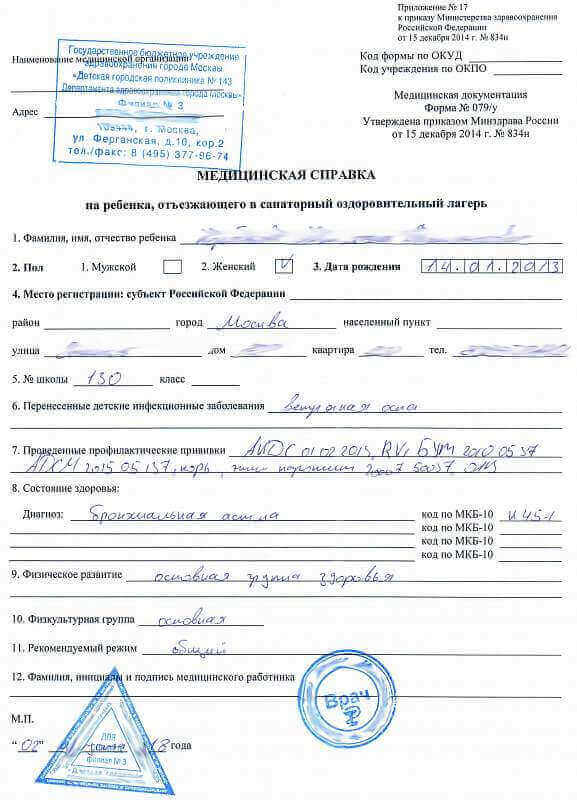 Приложение № 17
к приказу Министерства здравоохранения
Российской Федерации
от 15 декабря 2014 г. № 834н
Наименование медицинской организации
Государственное бюджетное учреждение
здравоохранения города Москвы
«Детская городская поликлиника № 143
Департамента здравоохранения города Москвы»
Филиал № 3
г. Москва,
ул Ферганская, д.10, кор.2
тел./факс: 8 (495) 377-96-74
Адрес
Код формы по ОКУД
Код учреждения по ОКПО
Медицинская документация
Форма № 079/у
Утверждена приказом Минздрава России
от 15 декабря 2014 г. № 834н
МЕДИЦИНСКАЯ СПРАВКА
на ребенка, отъезжающего в санаторный оздоровительный лагерь
1. Фамилия, имя, отчество ребенка
2. Пол 1. Мужской 2. Женский V 3. Дата рождения 14.01.2013
4. Место регистрации: субъект Российской Федерации
район город Москва населенный пункт
улица дом квартира тел.
5. № школы 130 класс
6. Перенесенные детские инфекционные заболевания ветряная оспа
7. Проведенные профилактические прививки
корь,
8. Состояние здоровья:
Диагноз: бронхиальная астма код по МКБ-10
код по МКБ-10
код по МКБ-10
код по МКБ-10
9. Физическое развитие основная группа здоровья
10. Физкультурная группа основная
11. Рекомендуемый режим общий
12. Фамилия, инициалы и подпись медицинского работника
Врач
М.П.
для
филиал № 3
“02” 18 года